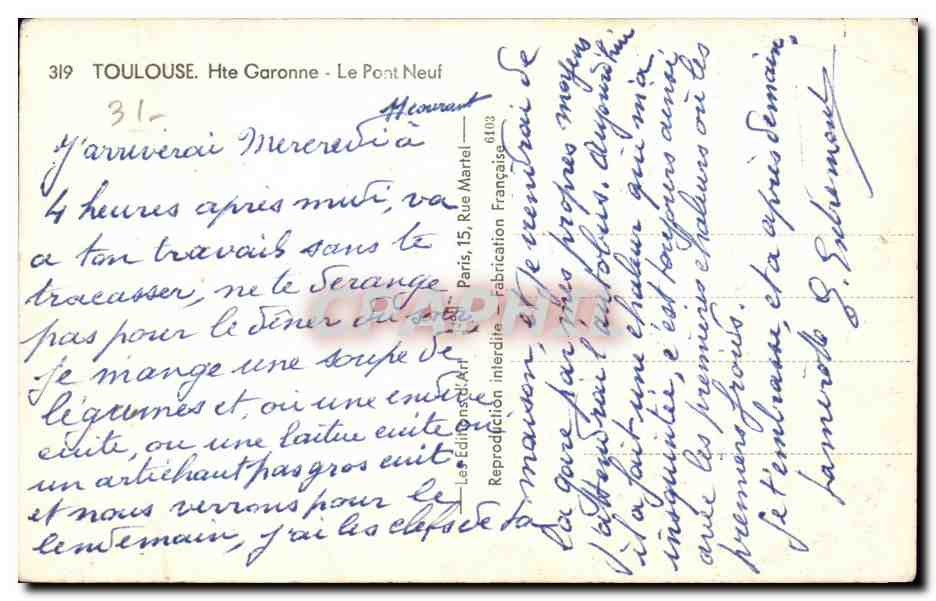 319 TOULOUSE. Hte Garonne - Le Pont Neuf
31-
11 courant
J'arriverai Mercredi à
4 heures après midi, va
a ton travail sans te
tracasser, ne te dérange
pas pour le dîner du soir,
je mange une soupe de
légumes et, ou une endive
cuite, ou une laitue cuite ou
un artichaut pas gros cuit.
et nous verrons pour le
lendemain, j'ai les clefs de ta
maison, et je viendrai de
la gare par mes propres moyens
j'attendrai l'autobus. Aujourd'hui
il a fait une chaleur qui m'a
inquiétée, c'est toujours ainsi
avec les premières chaleurs ou les
premiers froids.
Je t'embrasse, et a après demain.
Ta
G. Entremont
Les Editions d'Art Paris, 15, Rue Martel
Reproduction interdite - Fabrication Française 6103
CPAPHIL